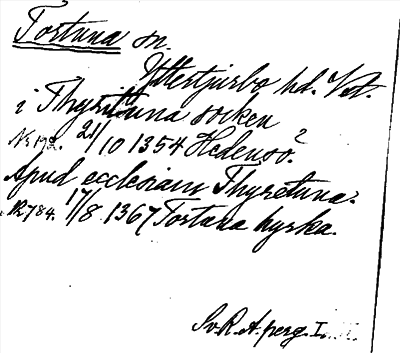 Tortuna sn.
Yttertjurbo hd. Vst.
i Thyrittuna socken
Nr 192. 21/10 1354 Hedensö?
Apud ecclesiam Thyretuna.
R 784. 17/8 1367 Tortuna kyrka.
Sv. R. A. perg. I